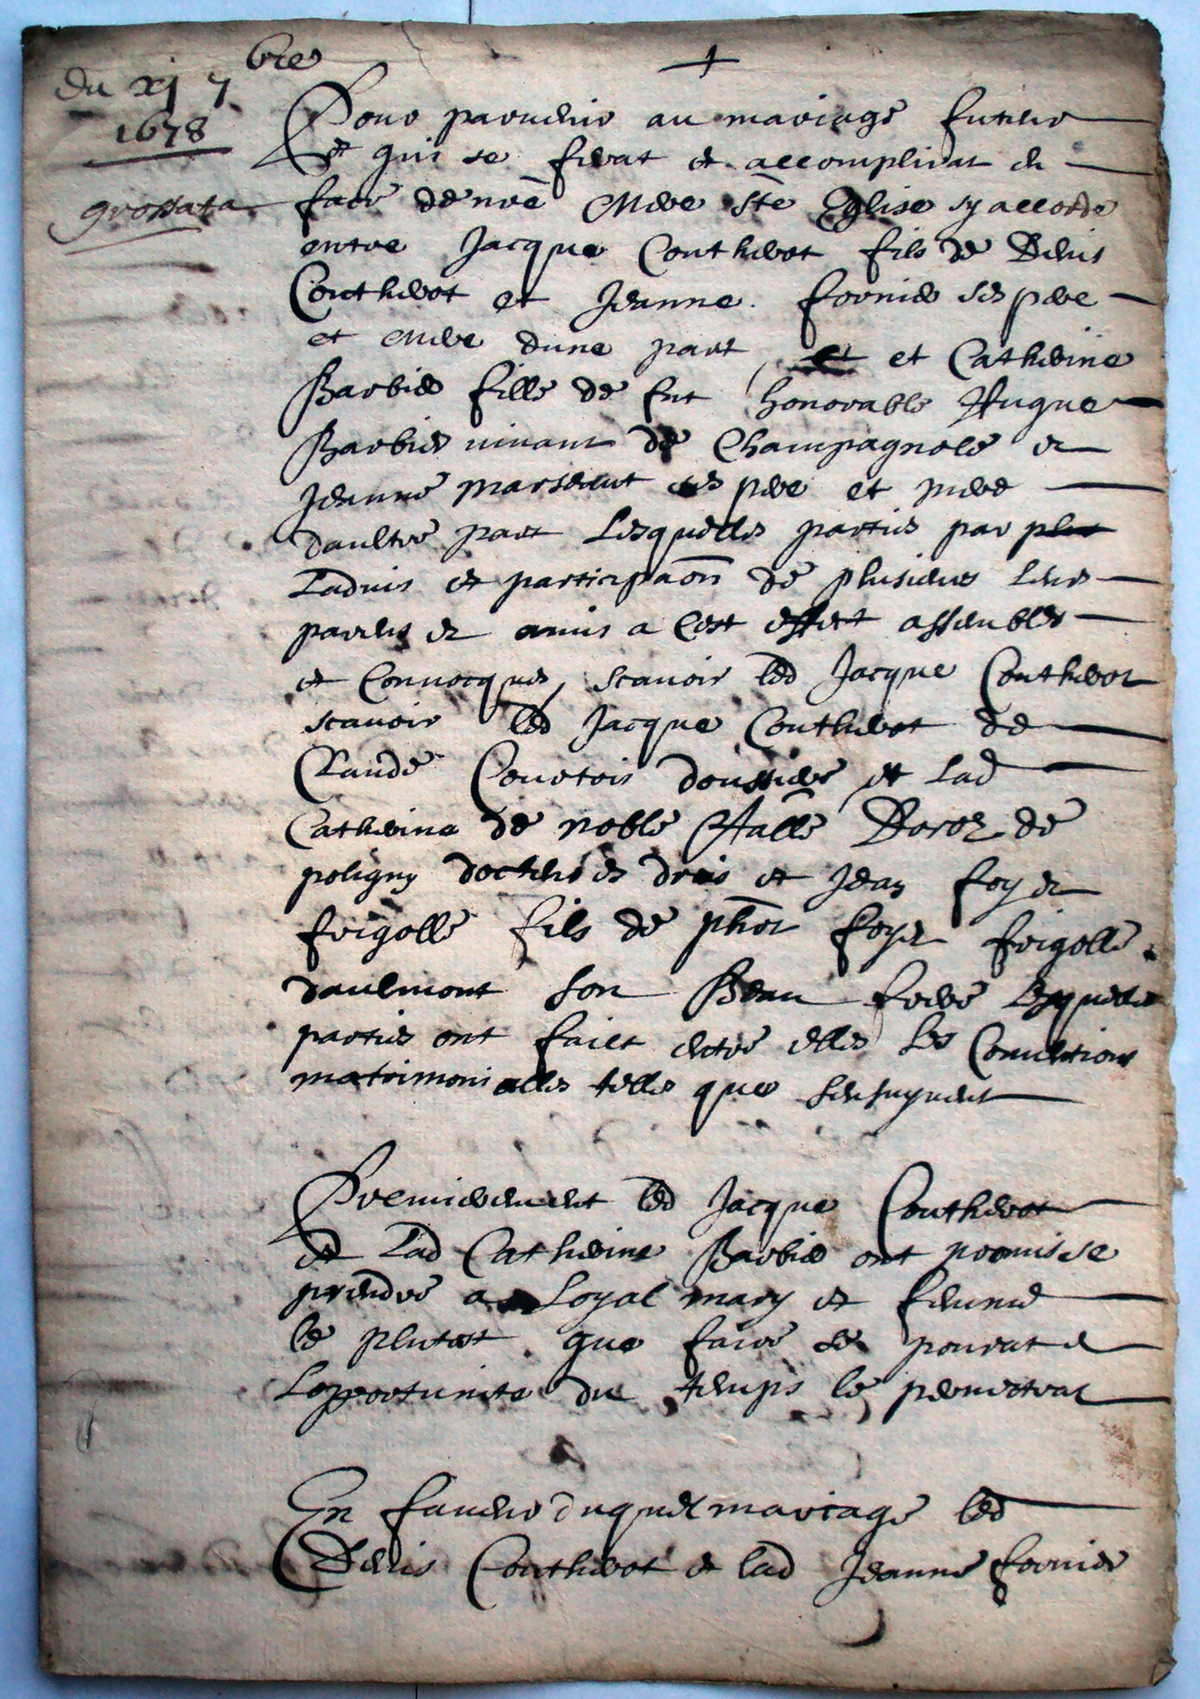 du xj 7bre
1678
grossata
Pour paruenir au mariage futeur
et qui se ferat et accomplirat en
face de nre Mere Ste Eglise sy accorde
entre Jacque Coutherot fils de Denis
Coutherot et Jeanne fornier ses pere
et Mere dune part, et et Catherine
Barbier fille de fut honorable Hugue
Barbier uiuant de Champagnole et
Jeanne Marseut ses pere et mere
daultre part Lesquelles parties par plu
Laduis et participaon de plusieurs leurs
parens et amis a cest effect assembles
et Conuocques, scauoir led Jacque Coutherot
scauoir led Jacque Coutherot de
Claude Courtois doussiere et lad
Catherine de noble Doroz de
poligny docteur es drois et Jean foyet
frigolle fils de foyet frigolle
daulmont son Beau frere Lesquelles
parties ont faict entre elles les Conuentions
matrimonialles telles que sensuyuent
Premierement led Jacque Coutherot
et Lad Catherine Barbier ont promis se
prendre a Loyal mary et femme
le plutost que faire se pourat et
Lopportunite du temps le permettrat
En faueur duquel mariage led
Denis Coutherot et lad Jeanne fornier